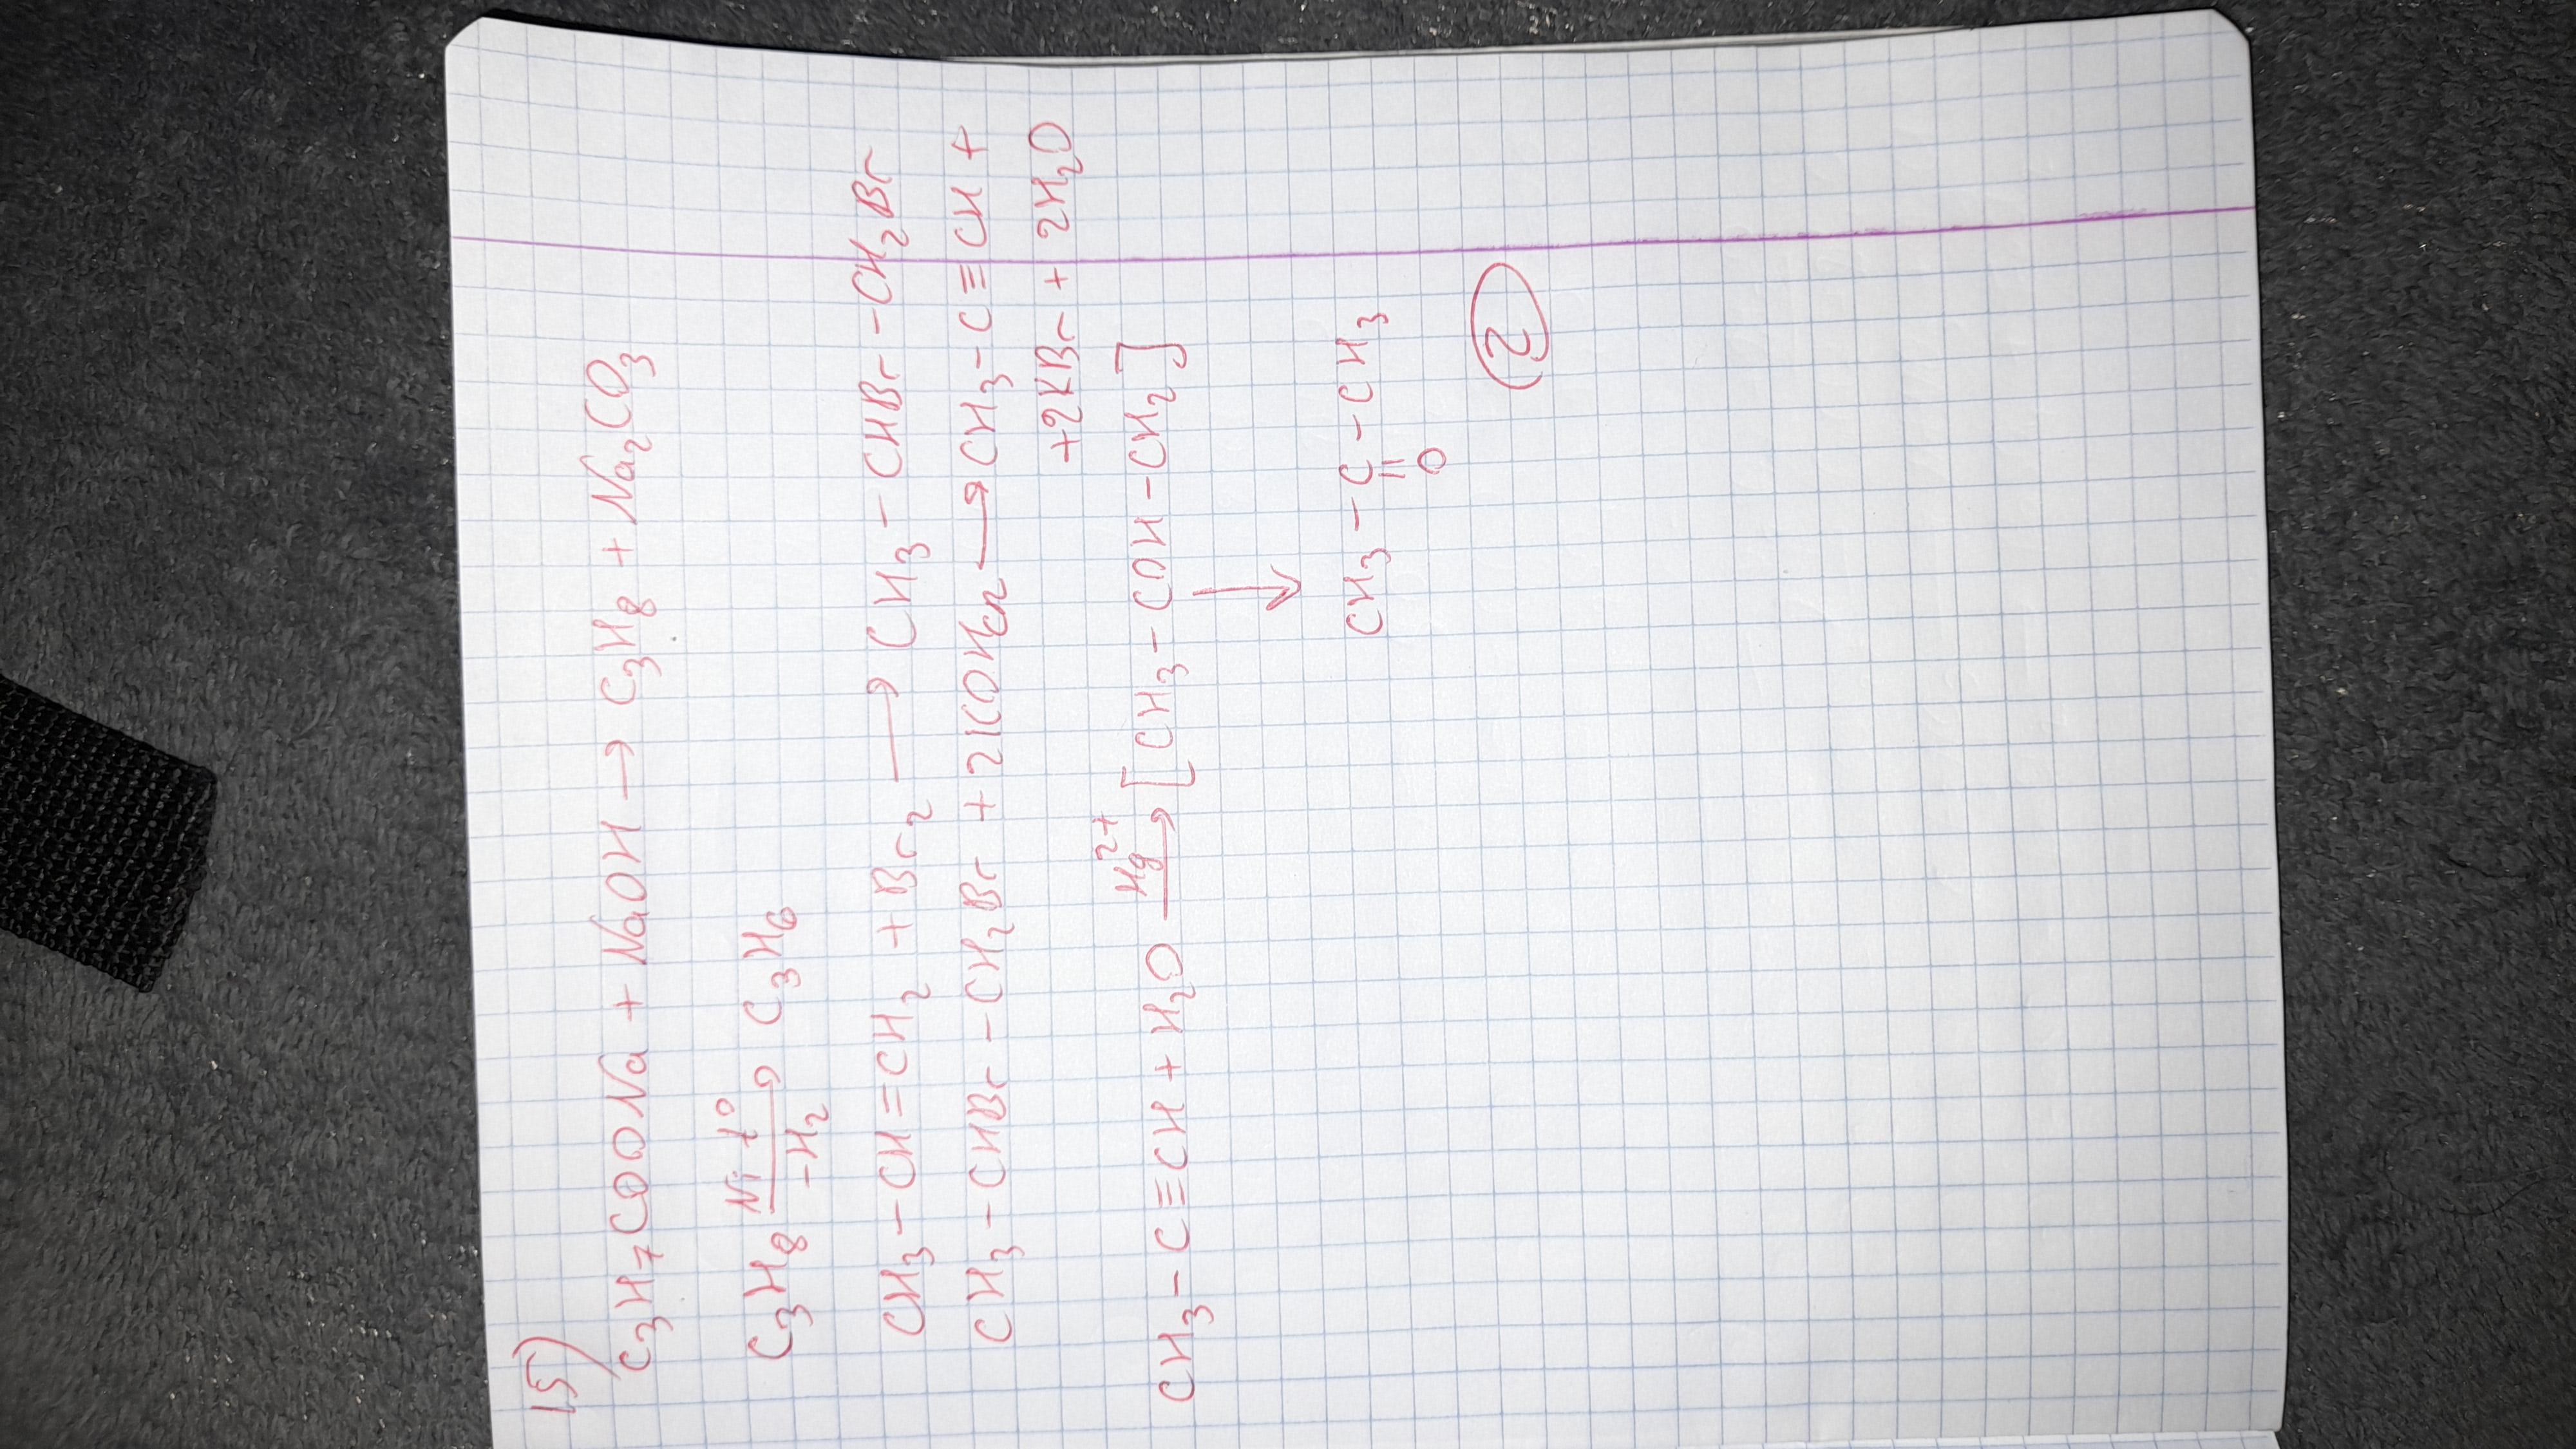 15)
C₃H₇COONa + NaOH → C₃H₈ + Na₂CO₃
Ni t°
C₃H₈ → C₃H₆
-H₂
CH₃-CH=CH₂ + Br₂ → CH₃-CHBr-CH₂Br
CH₃-CHBr-CH₂Br + 2KOH → CH₃-C≡CH +
+2KBr + 2H₂O
Hg²⁺
CH₃-C≡CH + H₂O → [CH₃-COH-CH₂]
↓
CH₃-C-CH₃
||
O
2